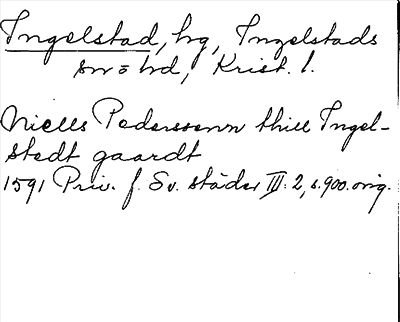 Ingelstad, hg, Ingelstads
sn o hd, Krist. l.
Niells Pederssenn thill Ingel-
stedt gaardt
1591 Priv. f. Sv. städer III: 2, s. 900. orig.